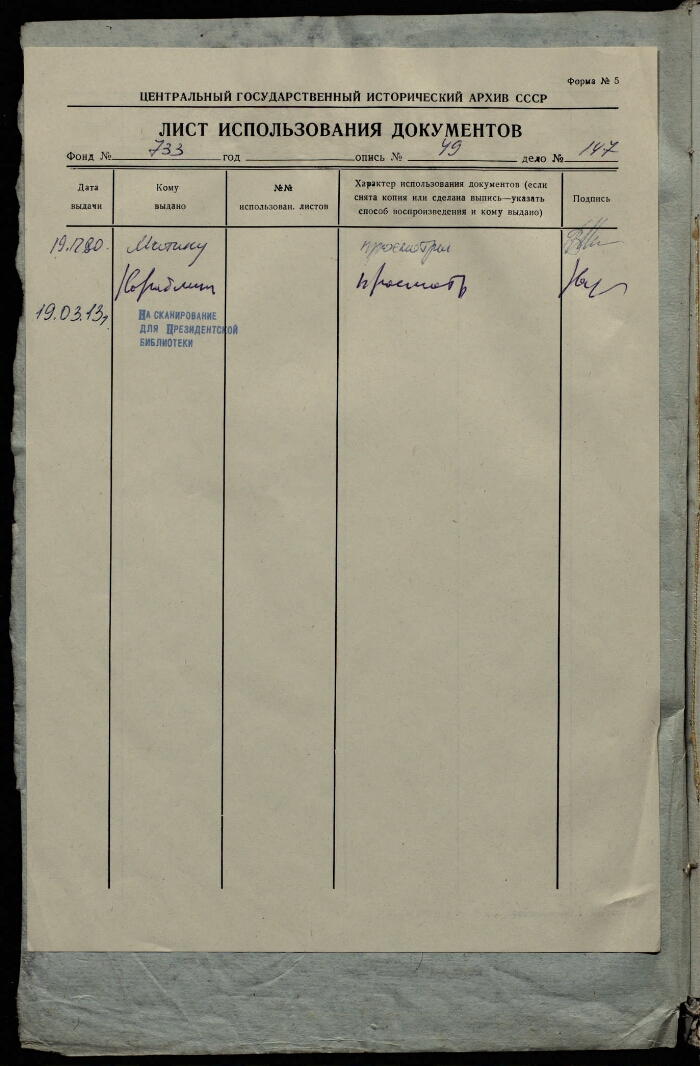 Форма № 5
ЦЕНТРАЛЬНЫЙ ГОСУДАРСТВЕННЫЙ ИСТОРИЧЕСКИЙ АРХИВ СССР
ЛИСТ ИСПОЛЬЗОВАНИЯ ДОКУМЕНТОВ
Фонд № 733 год опись № 49 дело № 147
Дата выдачи
Кому выдано
№№ использован. листов
Характер использования документов (если
снята копия или сделана выпись—указать
способ воспроизведения и кому выдано)
Подпись
просмотрел
просмотр
19.03.13
На сканирование
для Президентской
библиотеки